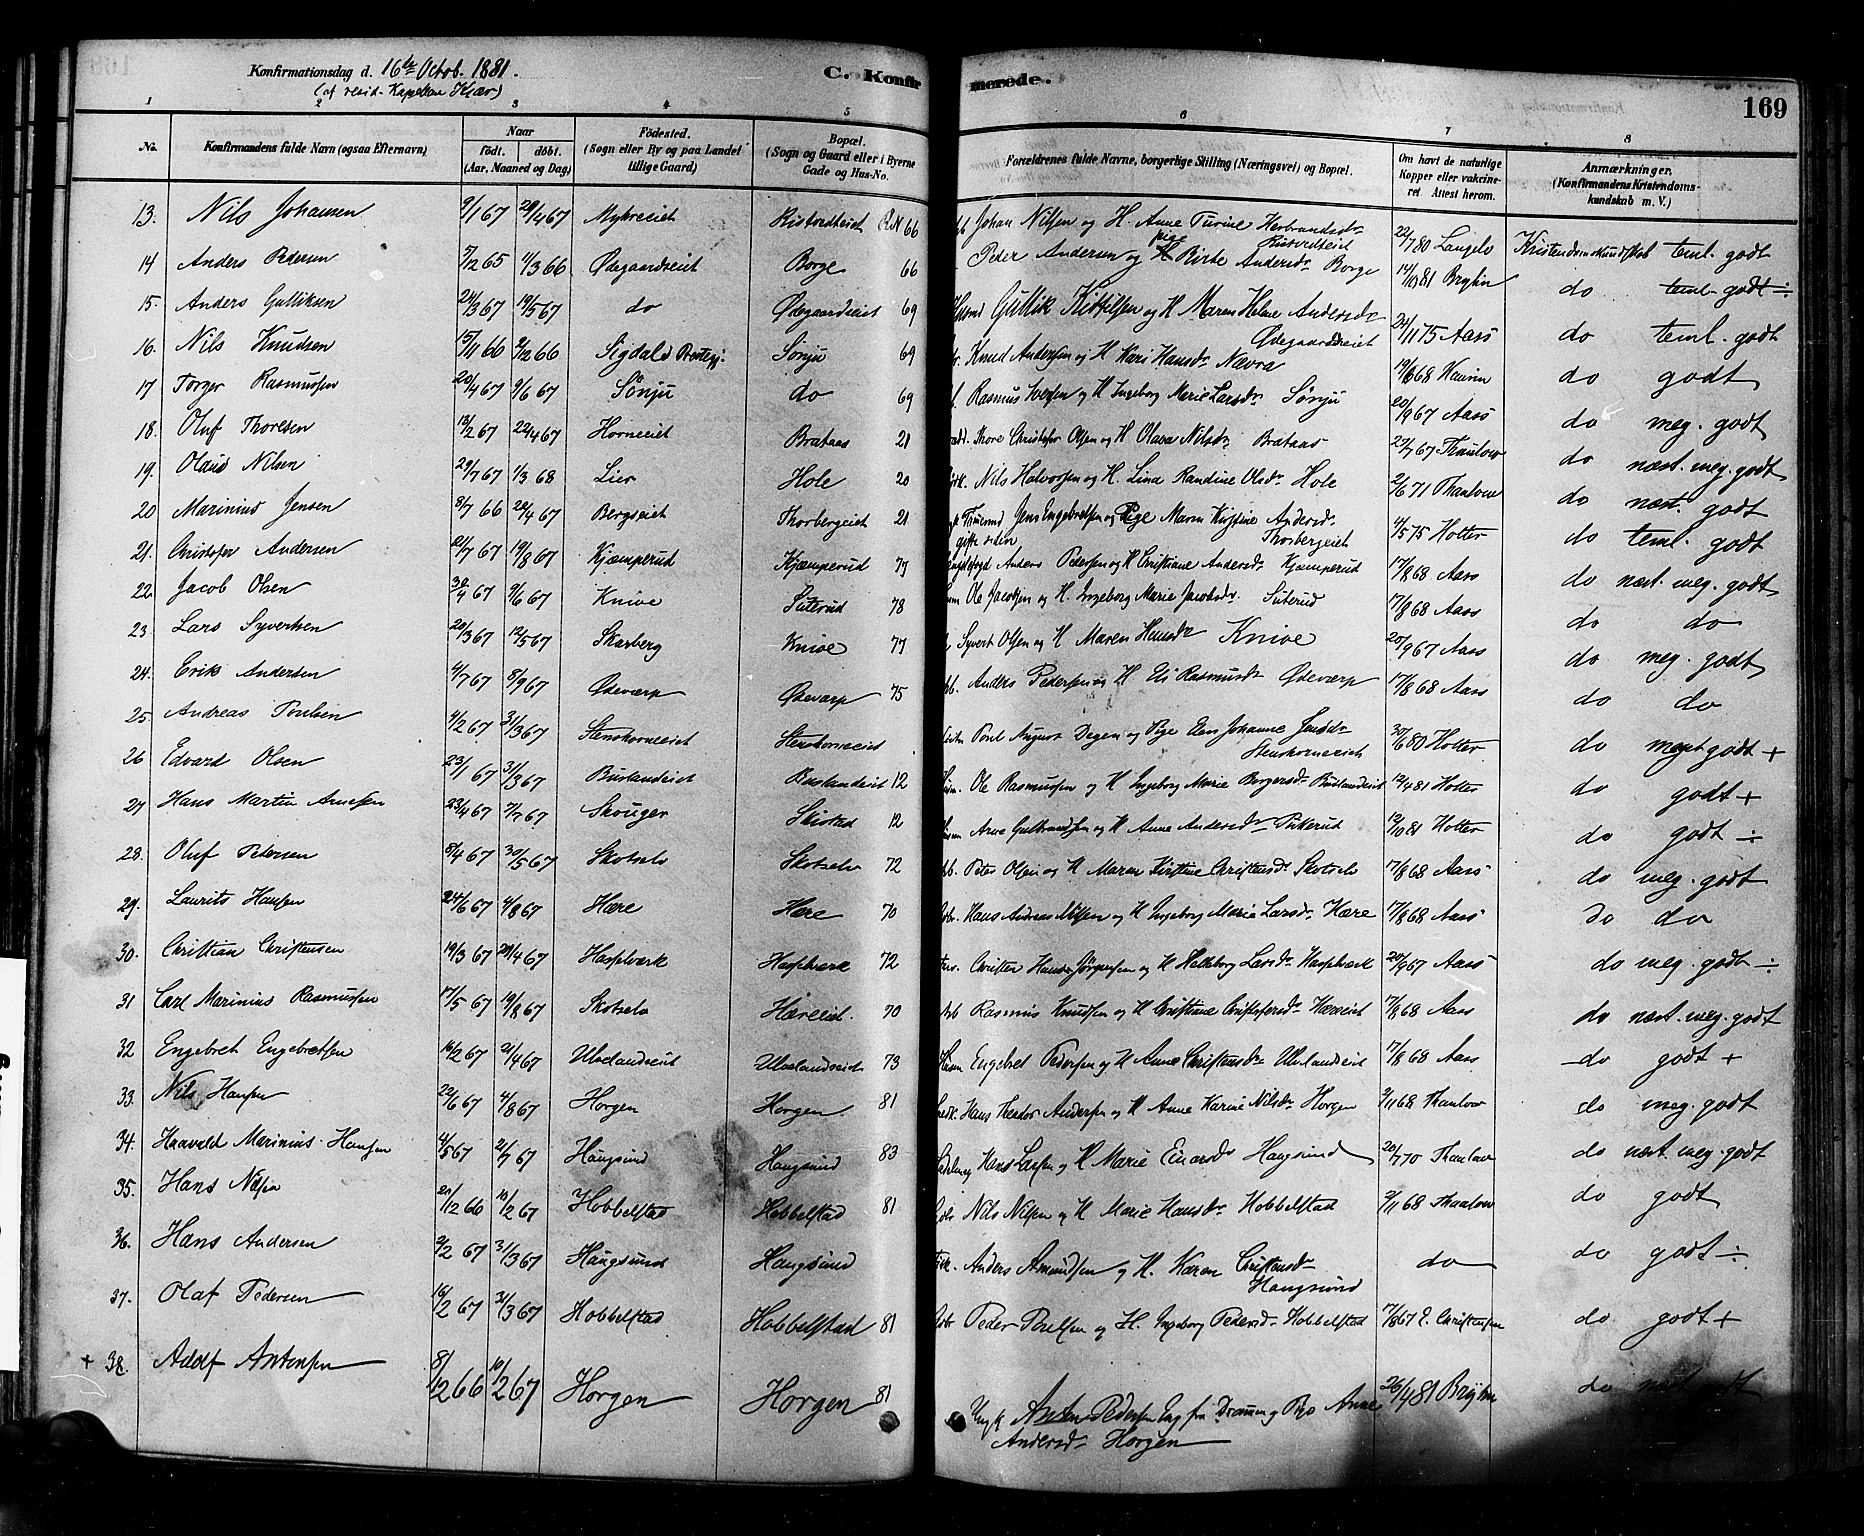 Konfirmationsdag d. 16de Octob. 1881.
(af resid. Kapellan Kiær)
C. Konfirmerede.
169
1 2 3 4 5 6 7 8
No. Konfirmandens fulde Navn (ogsaa Efternavn) Naar født. døbt. (Aar, Maaned og Dag) Fødested. (Sogn eller By og paa Landet tillige Gaard) Bopæl. (Sogn og Gaard eller i Byerne Gade og Hus-No. Forældrenes fulde Navne, borgerlige Stilling (Næringsvei) og Bopæl. Om havt de naturlige Kopper eller vakcineret. Attest herom. Anmærkninger. (Konfirmandens Kristendomskundskab m. V.)
13. Nils Johansen 9/1 67 28/4 67 Myhreeiet Ristvedteiet 66 Johan Nilsen og H. Anne Turine Herbrandsdr Ristvedteiet 22/7 80 Langelv Kristendomskundskab teml. godt
14 Anders Pedersen 5/12 65 11/3 66 Ødegaardseiet Borge 66 Peder Andersen og Pige Birte Andersdr Borge 14/10 81 Bryhn do teml. godt ÷
15. Anders Gulliksen 24/3 67 19/5 67 do Ødegaardseiet 69 Gullik Kittilsen og H Maren Helene Andersdr Ødegaardseiet 24/11 75 Aass do teml. godt
16. Nils Knudsen 15/11 66 2/12 66 Sigdals Prestegj. Sønju 69 Knud Andersen og H Kari Hansdr Nævra 19/6 68 do godt
17 Torger Rasmussen 20/4 67 9/6 67 Sønju do 69 Rasmus Iversen og H Ingeborg Marie Larsdr Sønju 20/9 67 Aass do meg. godt
18. Oluf Thoresen 13/2 67 22/4 67 Horneeiet Brataas 21 Thore Christofer Olsen og H Olava Nilsdr Brataas 22/7 67 Thaulow do næst. meg. godt
19. Olaus Nilsen 29/7 67 1/3 68 Lier Hole 20 Nils Halvorsen og H. Lina Randine Olsdr Hole 2/6 71 Thaulow do næst. godt
20 Marinius Jensen 8/7 66 28/4 67 Bergseiet Thorbergeiet 21 Jens Engebretsen og Pige Maren Kirstine Andersdr gifte siden Thorbergeiet 4/5 75 Hotter do teml. godt
21. Christofer Andersen 21/7 67 19/8 67 Kjæmperud Kjæmperud 77 Anders Pedersen og H Christiane Andersdr Kjæmperud 17/8 68 Aass do næst. meg. godt
22. Jacob Olsen 30/4 67 9/6 67 Knive Suterud 78 Ole Jacobsen og H. Ingeborg Marie Jacobsdr Suterud 17/8 68 Aass do do
23. Lars Syvertsen 20/3 67 12/5 67 Skarberg Knive 77 Syvert Olsen og H Maren Hansdr Knive 20/9 67 Aass do meg. godt
24. Erik Andersen 4/7 67 8/9 67 Ødeværp Ødeværp 75 Anders Pedersen og H Eli Rasmusdr Ødeværp 17/8 68 Aass do do
25. Andreas Poulsen 4/2 67 31/3 67 Stenskorneeiet Stenskorneeiet Poul August Degen og Pige Elen Johanne Jensdr Stenskorneeiet 30/6 80 Hotter do meget godt +
26 Edvard Olsen 23/1 67 31/3 67 Buslandeiet Buslandeiet 12 Ole Rasmussen og H Ingeborg Marie Borgersdr Buslandeiet 12/4 81 Hotter do godt +
27 Hans Martin Arnesen 23/4 67 7/7 67 Skouger Skistad 12 Arne Gulbrandsen og H Anne Andersdr 12/10 81 Hotter do godt ÷
28. Oluf Petersen 8/4 67 30/5 67 Skotselv Skotselv 72 Peter Olsen og H Maren Kirstine Christensdr Skotselv 17/8 68 Aass do meg. godt
29. Laurits Hansen 24/6 67 4/8 67 Hære Hære 70 Hans Andreas Nilsen og H Ingeborg Marie Larsdr Hære 17/8 68 Aass do do
30. Christian Christensen 19/3 67 28/4 67 Hasselværk Hasselværk 72 Christen Hans Jørgensen og H Helleborg Larsdr Hasselværk 20/9 67 Aass do meg. godt ÷
31 Carl Marinius Rasmussen 17/5 67 19/8 67 Skotselv Hæreeiet. 70 Rasmus Knudsen og H Christiane Christofersdr Hæreeiet 17/8 68 Aass do næst. meg. godt
32 Engebret Engebretsen 14/2 67 21/4 67 Ulvelandseiet Ulvelandseiet 73 Engebret Pedersen og H Anne Christensdr Ulvelandseiet 17/8 68 Aass do godt +
33. Nils Hansen 22/6 67 4/8 67 Horgen Horgen 81 Hans Theodor Andersen og H Anne Karine Nilsdr Horgen 2/11 68 Thaulow do meg. godt
34. Haavald Marinius Hansen 4/5 67 21/7 67 Haugsund Haugsund 83 Hans Larsen og H Marie Einarsdr Haugsund 20/7 70 Thaulow do næst. meg. godt
35. Hans Nilsen 21/12 66 10/2 67 Hobbelstad Hobbelstad 81 Nils Nilsen og H Marie Hansdr Hobbelstad 2/11 68 Thaulow do godt
36. Hans Andersen 2/2 67 31/3 67 Haugsund Haugsund Anders Amundsen og H. Karen Christensdr Haugsund do do godt ÷
37. Olaf Pedersen 16/2 67 31/3 67 Hobbelstad Hobbelstad 81 Peder Poulsen og H. Ingeborg Pedersdr Hobbelstad 17/8 67 E. Christensen do godt +
+ 38. Adolf Antonsen 8/12 66 10/2 67 Horgen Horgen 81 Ungk Anton Pedersen Eng fra Drammen og Pige Anne Andersdr Horgen 26/4 81 Bryhn do næst godt